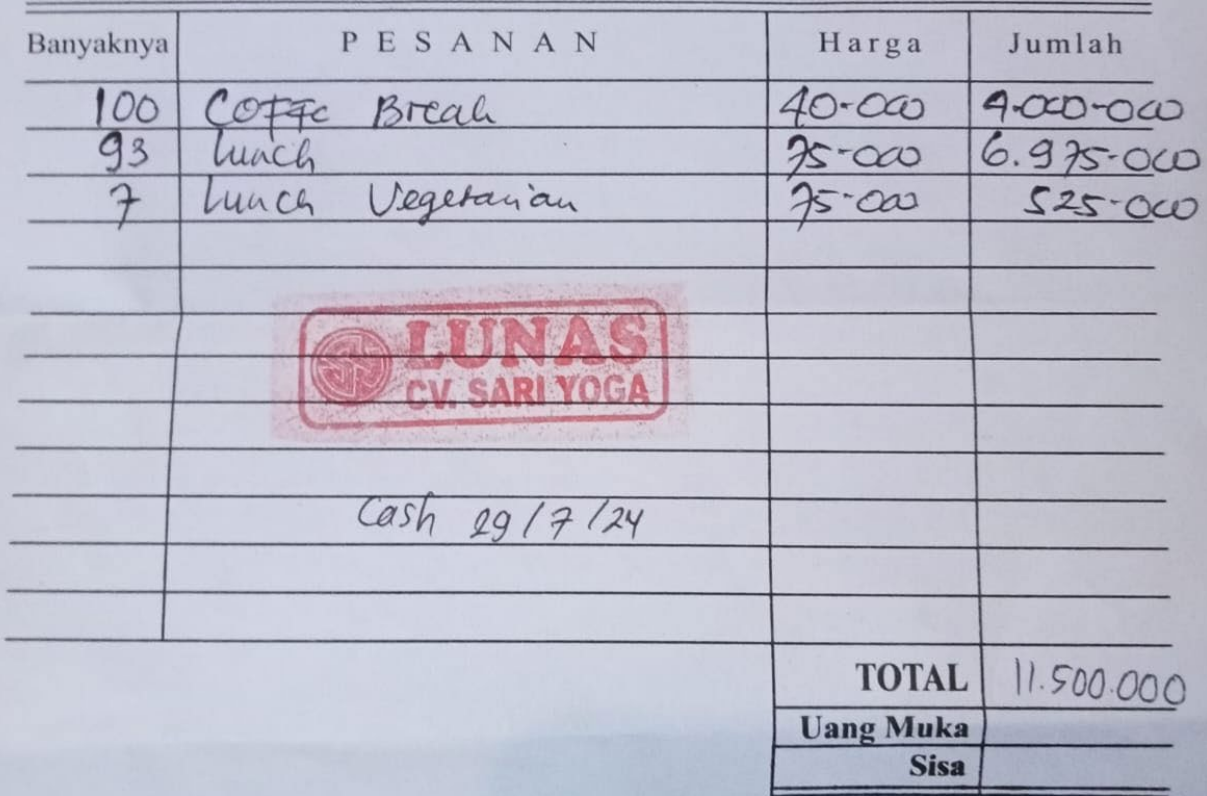 Banyaknya PESANAN Harga Jumlah
100 Coffe Break 40-000 4-000-000
93 Lunch 75-000 6.975-000
7 Lunch Vegetarian 75-000 525-000
LUNAS
CV. SARI YOGA
Cash 29/7/24
TOTAL 11.500.000
Uang Muka
Sisa